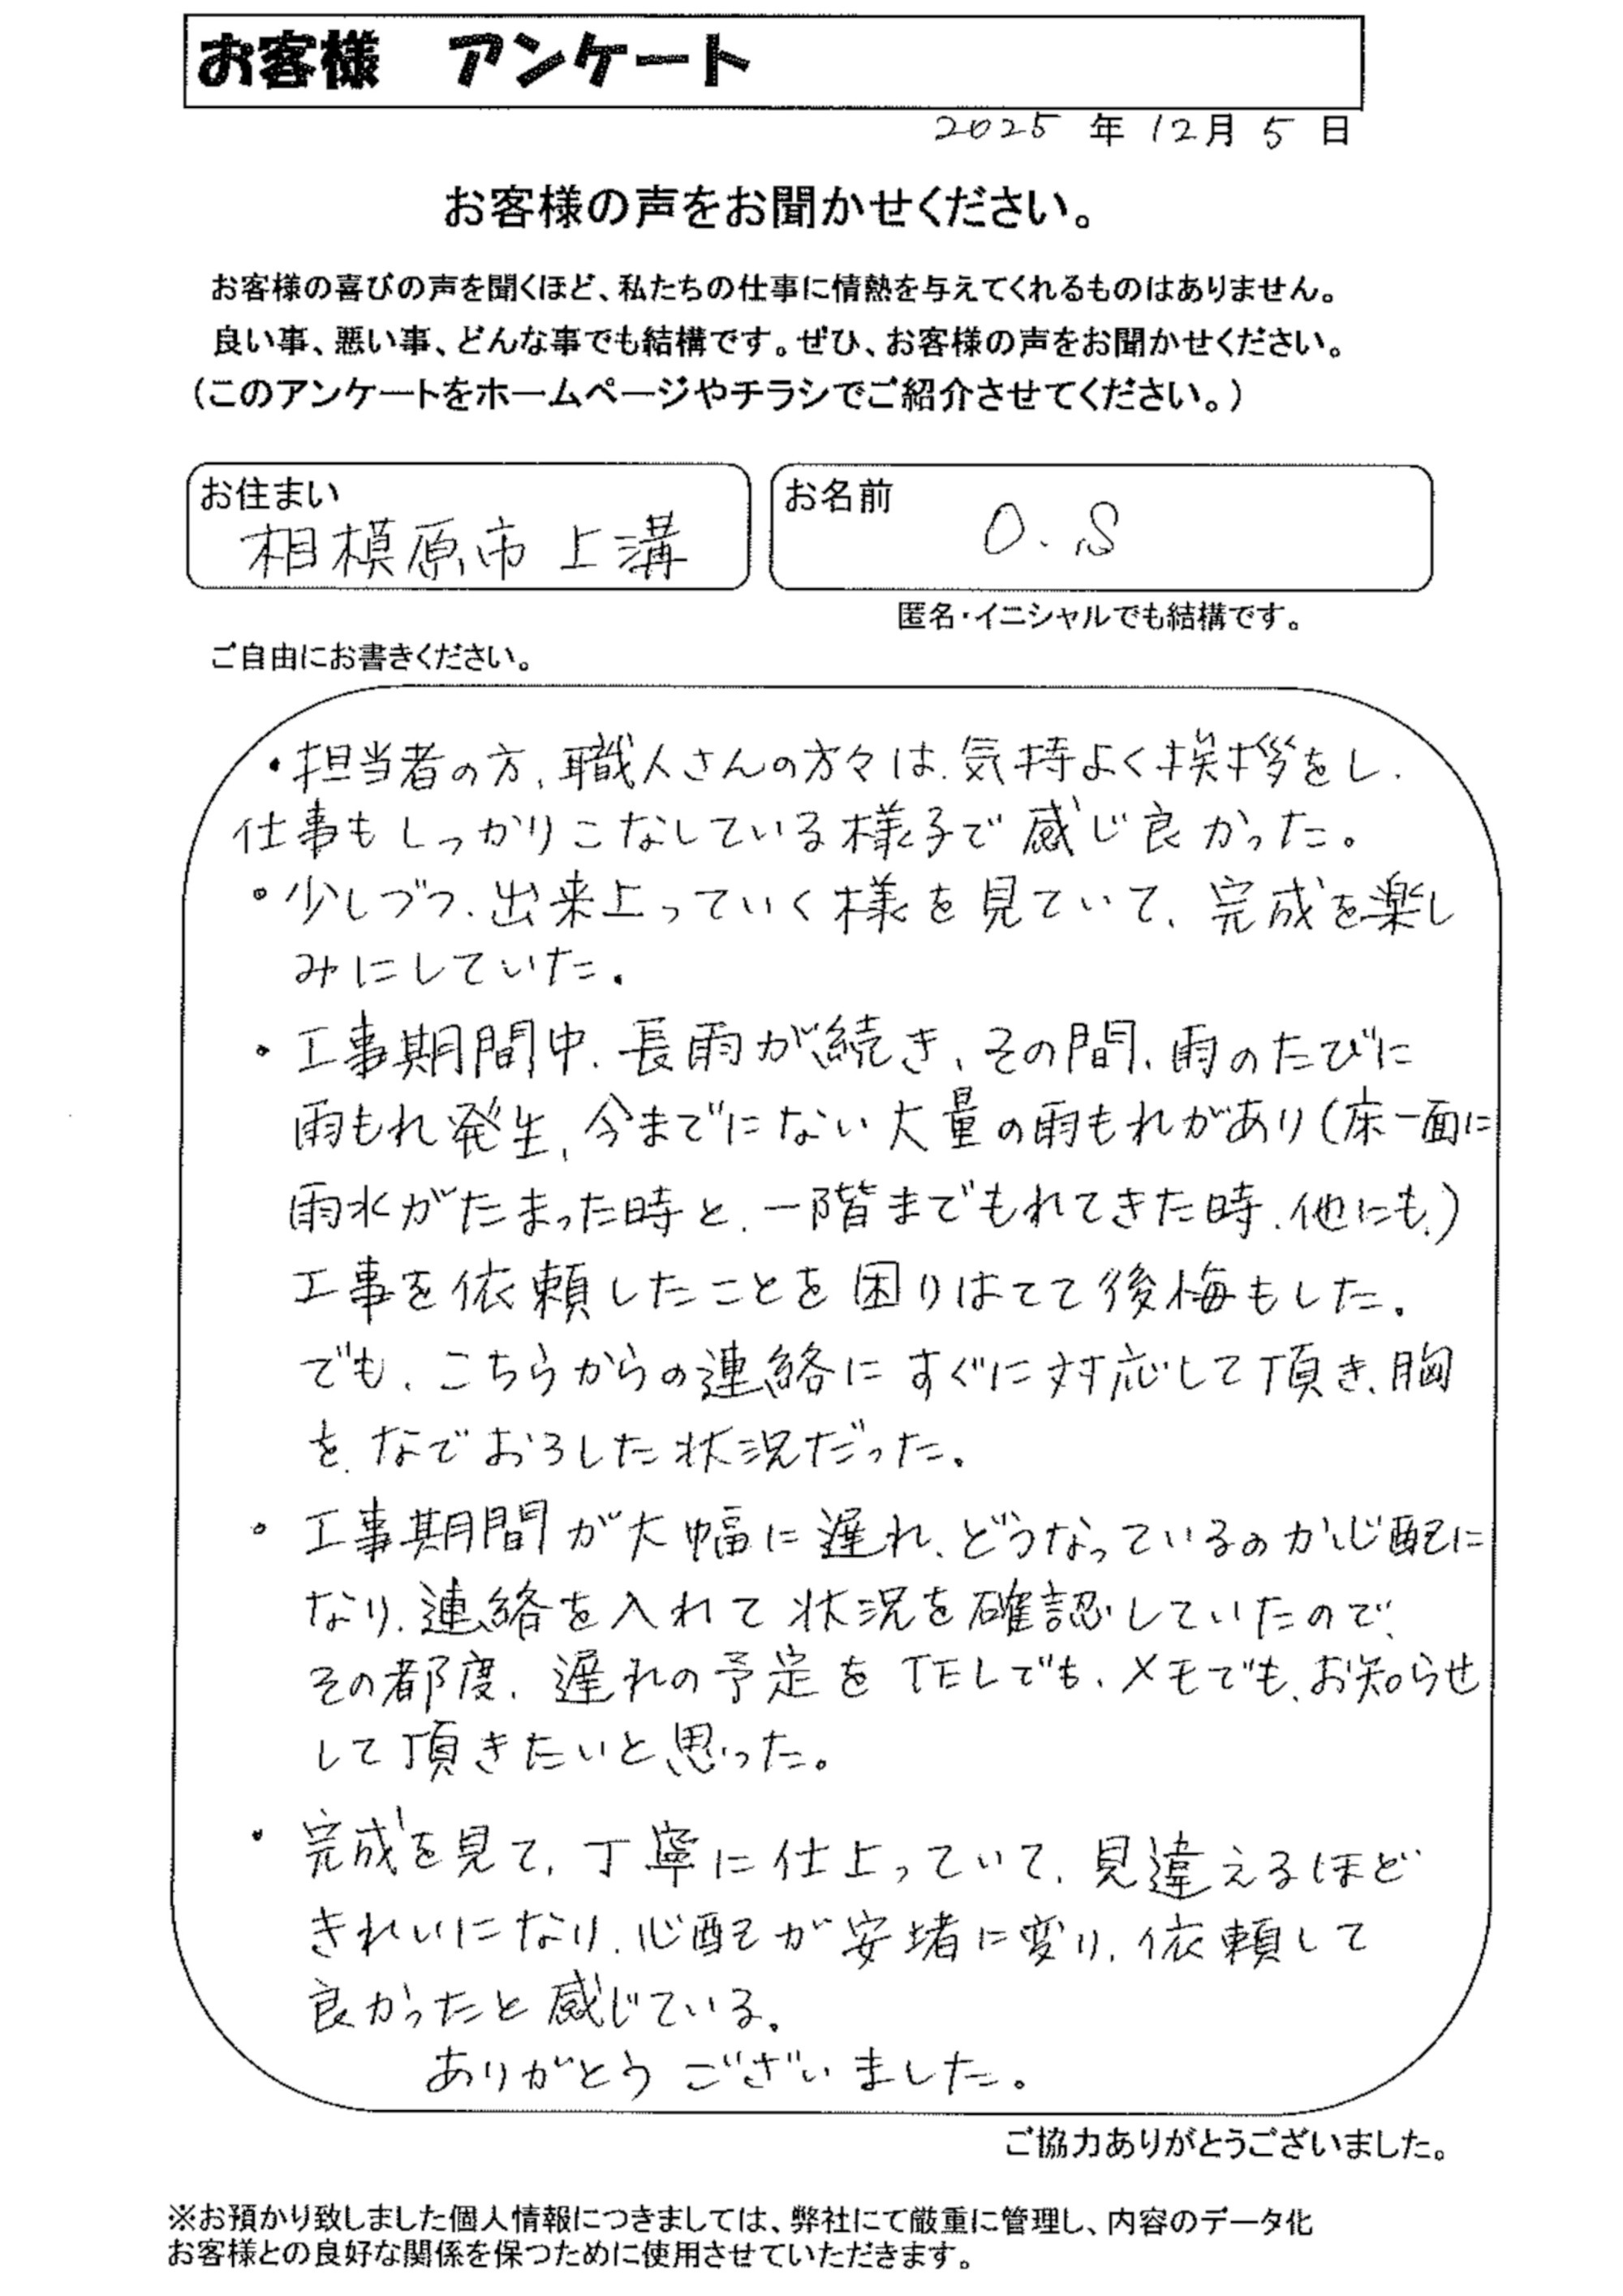 お客様　アンケート
2025 年 12月 5 日
お客様の声をお聞かせください。
お客様の喜びの声を聞くほど、私たちの仕事に情熱を与えてくれるものはありません。
良い事、悪い事、どんな事でも結構です。ぜひ、お客様の声をお聞かせください。
（このアンケートをホームページやチラシでご紹介させてください。）
お住まい
相模原市上溝
お名前
O.S
匿名・イニシャルでも結構です。
ご自由にお書きください。
・担当者の方、職人さんの方々は、気持よく挨拶をし、
仕事もしっかりこなしている様子で感じ良かった。
・少しづつ、出来上っていく様を見ていて、完成を楽し
みにしていた。
・工事期間中、長雨が続き、その間、雨のたびに
雨もれ発生、今までにない大量の雨もれがあり（床一面に
雨水がたまった時と、一階までもれてきた時、他にも、）
工事を依頼したことを困りはてて後悔もした。
でも、こちらからの連絡にすぐに対応して頂き、胸
を、なでおろした状況だった。
・工事期間が大幅に遅れ、どうなっているのか心配に
なり、連絡を入れて状況を確認していたので、
その都度、遅れの予定をTELでも、メモでも、お知らせ
して頂きたいと思った。
・完成を見て、丁寧に仕上っていて、見違えるほど
きれいになり、心配が安堵に変り、依頼して
良かったと感じている。
ありがとうございました。
ご協力ありがとうございました。
※お預かり致しました個人情報につきましては、弊社にて厳重に管理し、内容のデータ化
お客様との良好な関係を保つために使用させていただきます。